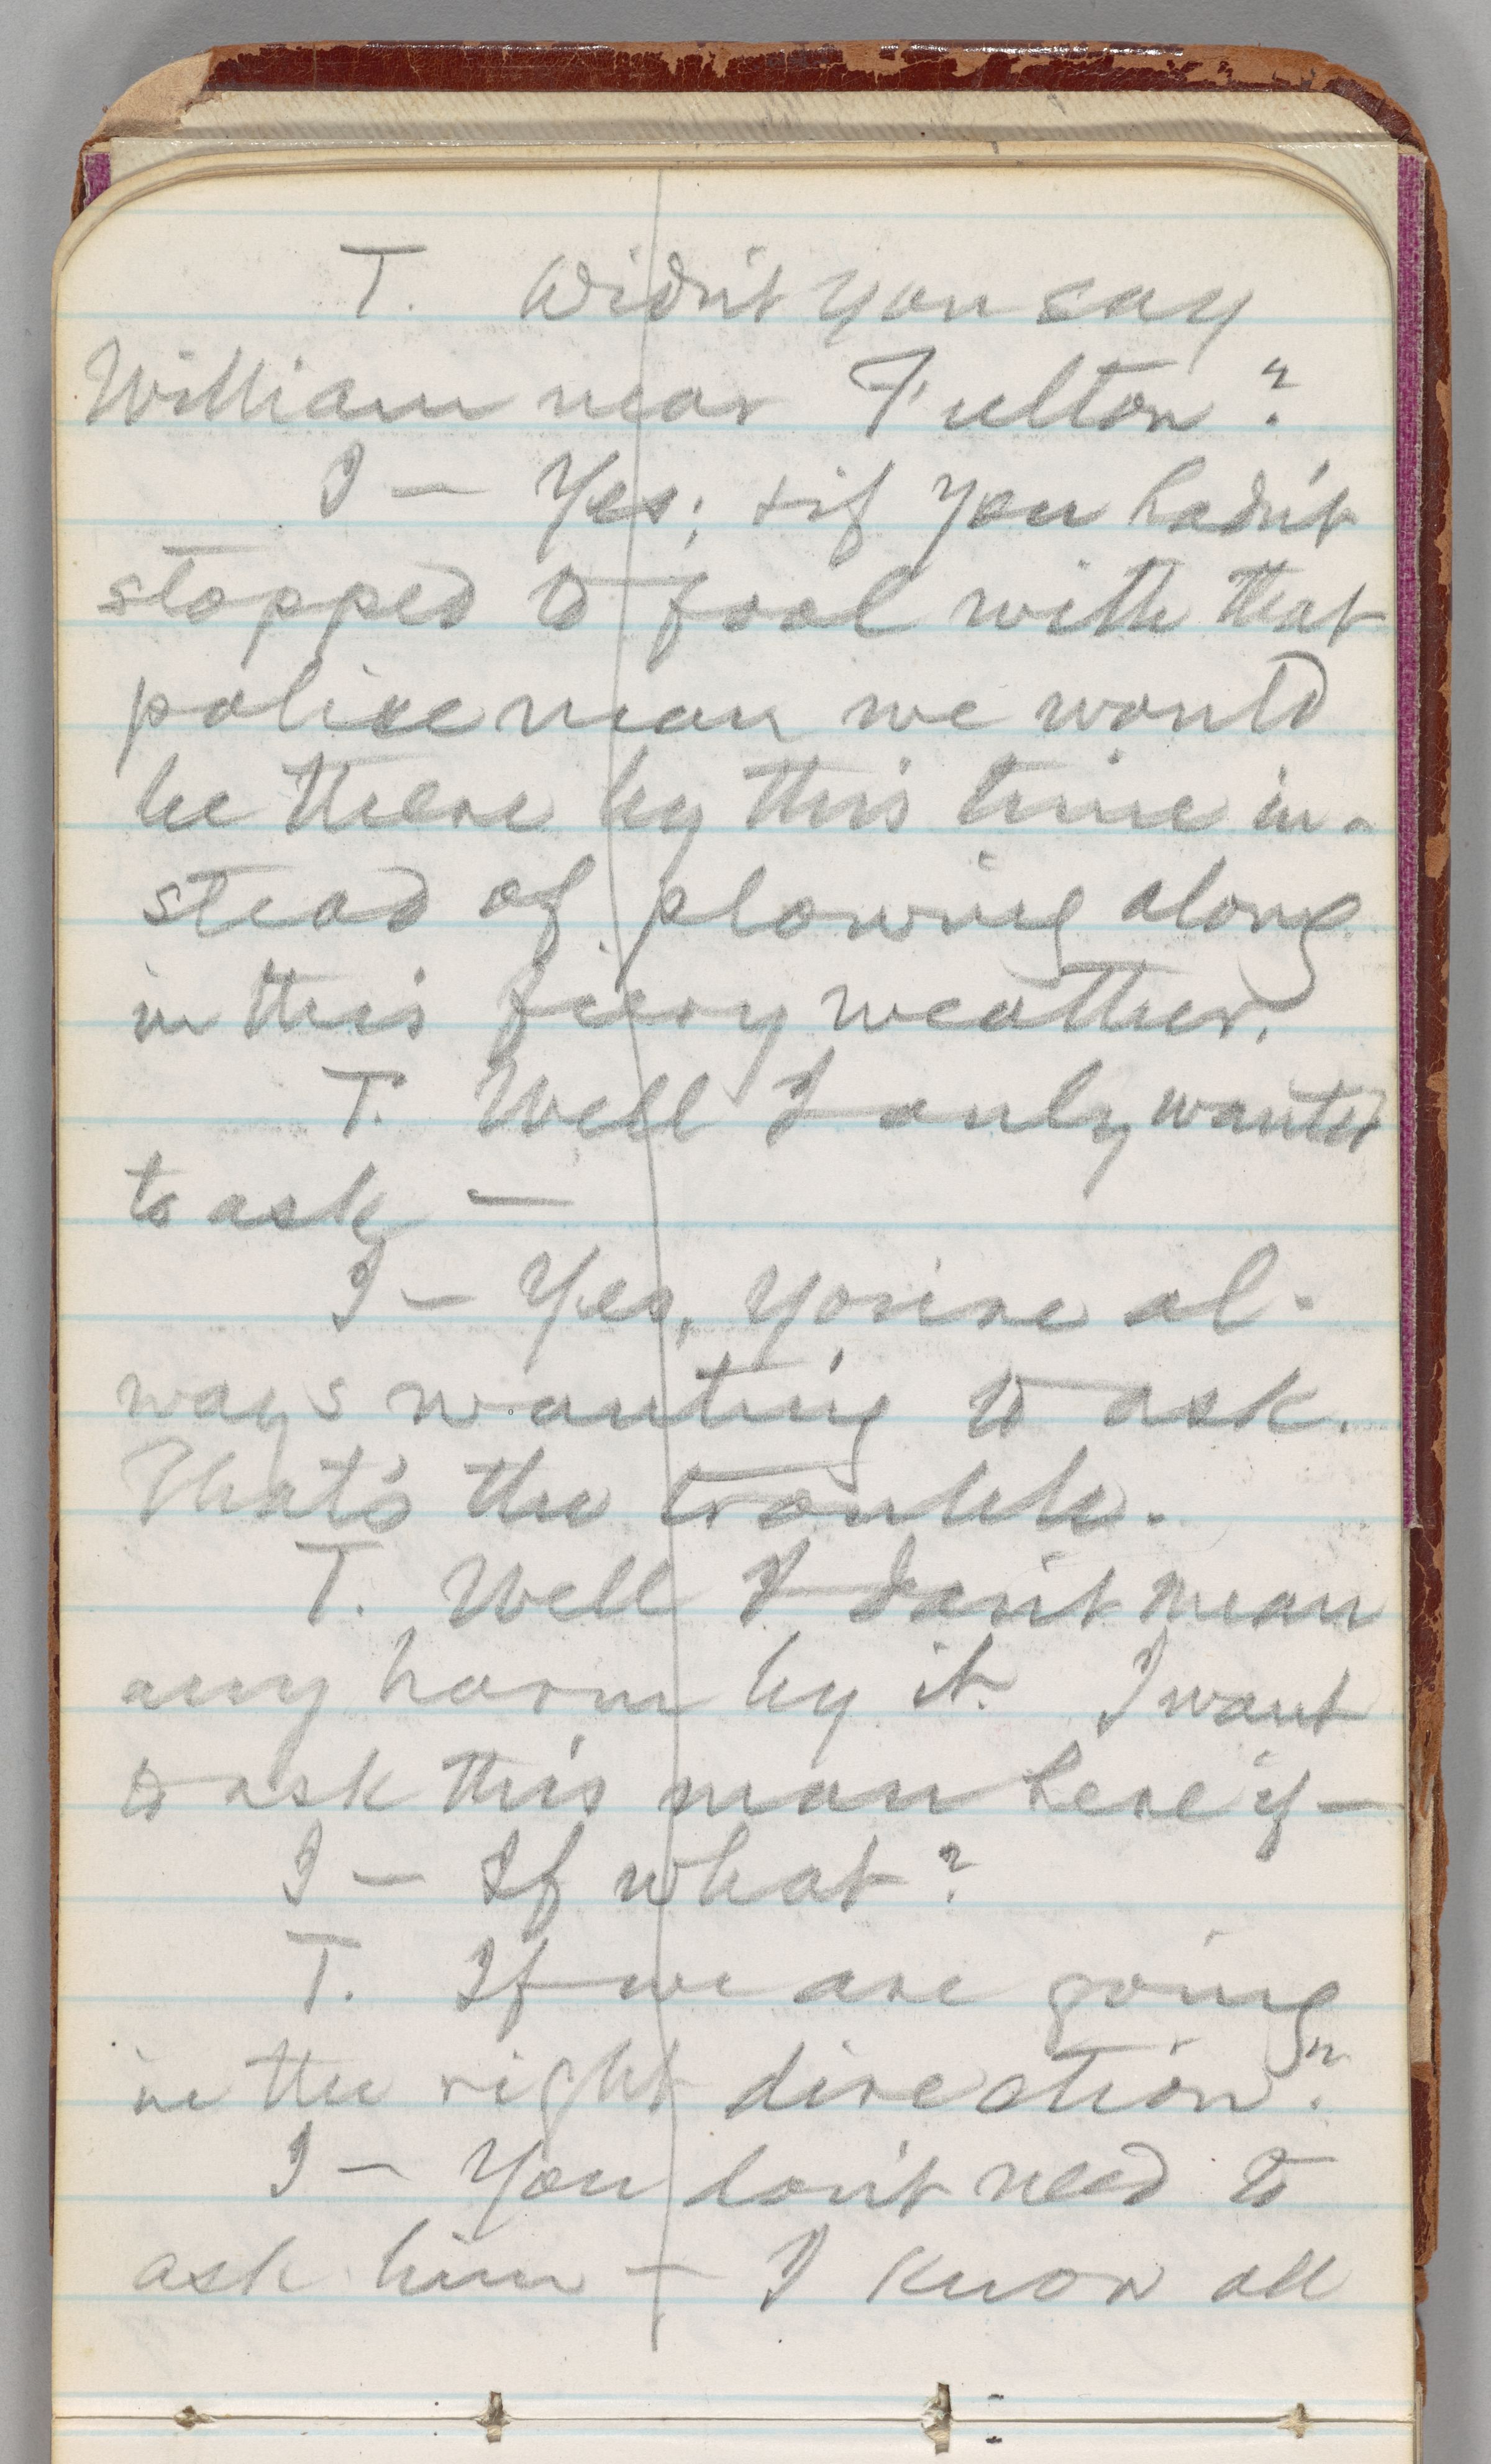 T. Didn't you say
William near Fulton?
J — Yes; + if you hadn't
stopped to fool with that
policeman we would
be there by this time in-
stead of plowing along
in this fiery weather.
T. Well I only wanted
to ask —
J — Yes, you're al-
ways wanting to ask.
That's the trouble.
T. Well I don't mean
any harm by it. I want
to ask this man here if —
J — If what?
T. If we are going
in the right direction?
J — You don't need to
ask him — I know all